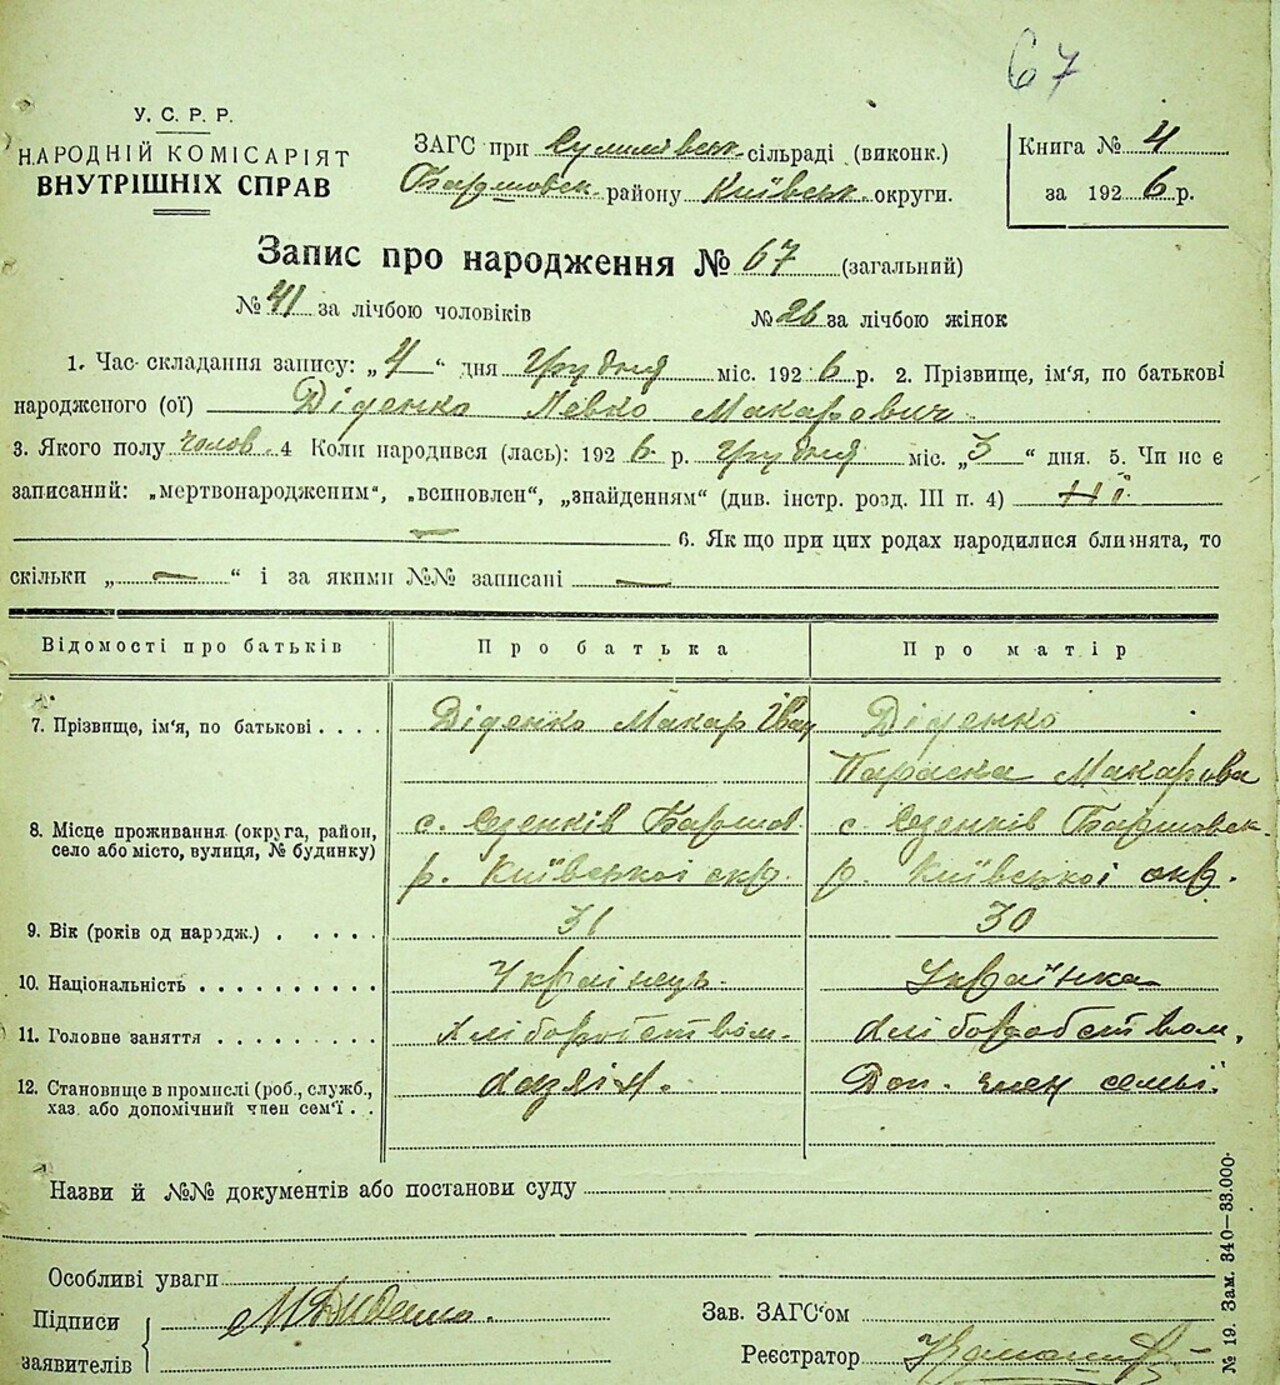 67
У. С. Р. Р.
НАРОДНІЙ КОМІСАРІЯТ
ВНУТРІШНІХ СПРАВ
ЗАГС при сільраді (виконк.)
Баришовск. району Київськ. округи.
Книга № 4
за 1926 р.
Запис про народження № 67 (загальний)
№ 41 за лічбою чоловіків № 26 за лічбою жінок
1. Час складання запису: „4“ дня Грудня міс. 1926 р. 2. Прізвище, ім'я, по батькові
народженого (ої) Діденко Левко Макарович
3. Якого полу чолов. 4 Коли народився (лась): 1926 р. Грудня міс. „3“ дня. 5. Чи не є
записаний: „мертвонародженим“, „всиновлен“, „знайденням“ (див. інстр. розд. III п. 4) Ні.
— 6. Як що при цих родах народилися близнята, то
скільки „—“ і за якими №№ записані —
Відомості про батьків Про батька Про матір
7. Прізвище, ім'я, по батькові . . . . Діденко Макар Іван Діденко
Параска Макарова
8. Місце проживання (округа, район,
село або місто, вулиця, № будинку)
с. Сезенків Баришов. с. Сезенків Баришовск.
р. Київської окр. р. Київської окр.
9. Вік (років од народж.) . . . . . 31 30
10. Національність . . . . . . . . . . Українець. Українка
11. Головне заняття . . . . . . . . . Хліборобством. Хліборобством.
12. Становище в промислі (роб., служб.,
хаз. або допомічний член сем'ї . .
Хазяїн. Доп. член семьї.
Назви й №№ документів або постанови суду
Особливі уваги
Підписи
заявителів
МДиденко.
Зав. ЗАГС'ом
Реєстратор
№ 19. Зам. 340—33.000.